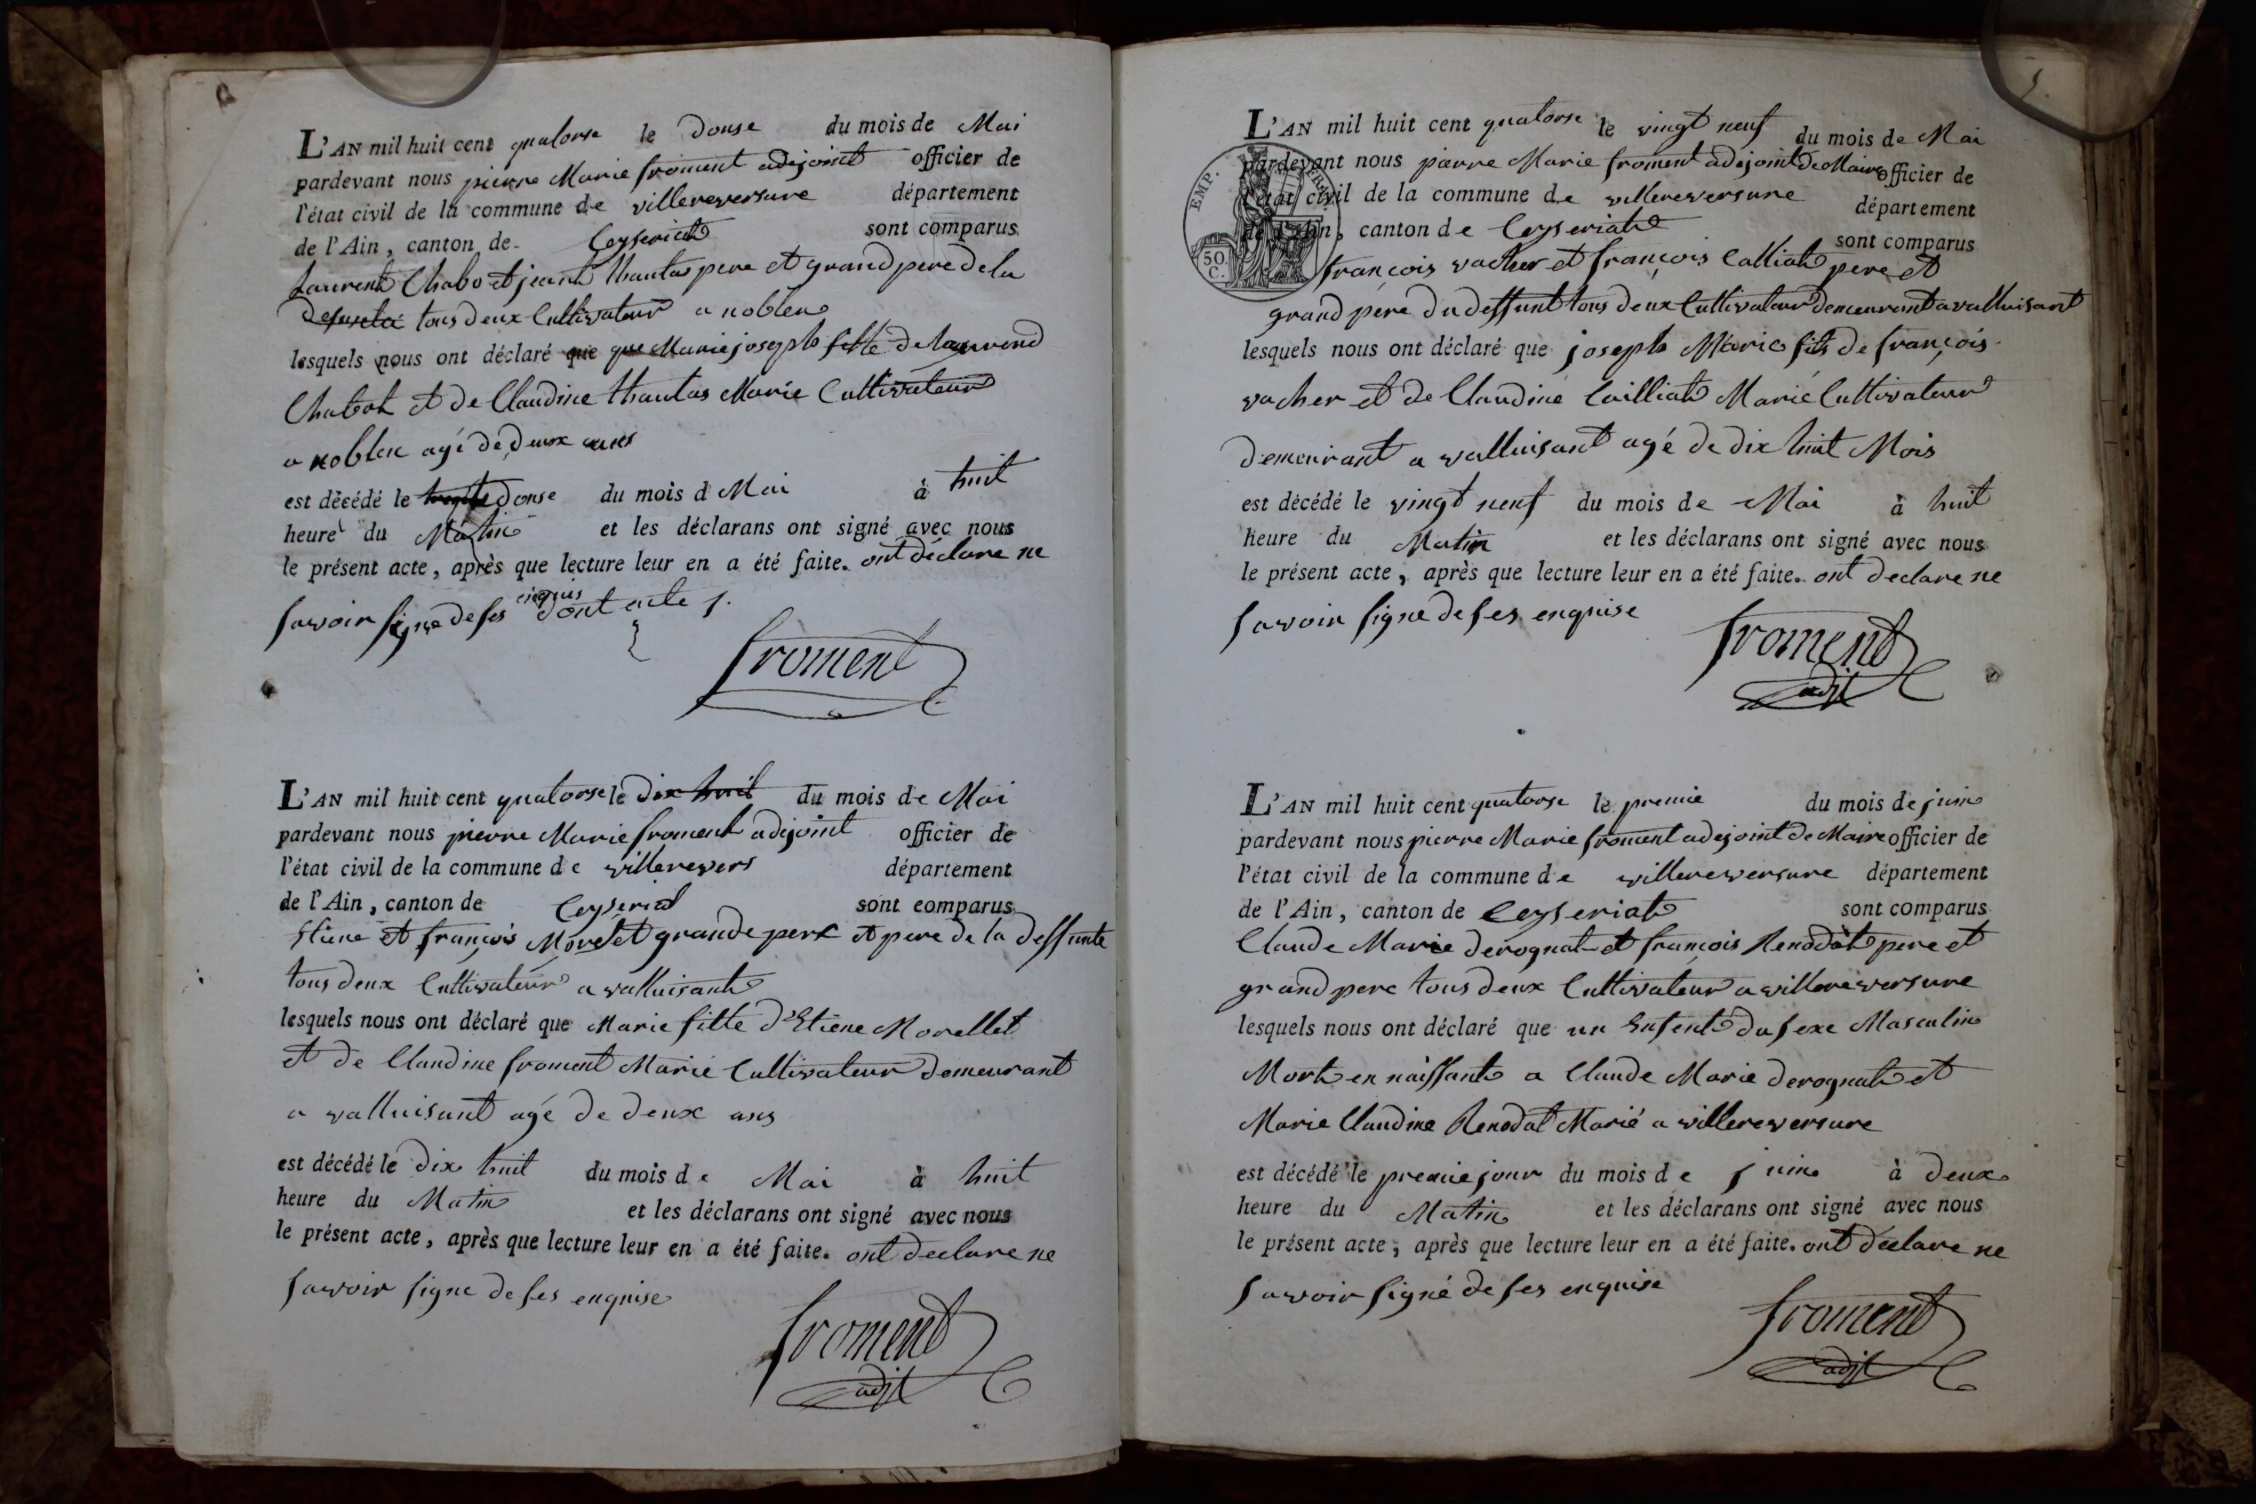 L'AN mil huit cent quatorse le douse du mois de Mai
pardevant nous pierre Marie froment adejoint officier de
l'état civil de la commune de villereversure département
de l'Ain, canton de Ceyseriat sont comparus
Laurent Chabot et jean thautas pere et grand pere de la
tous deux Cultivateur a noblen
lesquels nous ont déclaré que que Marie joseph fille de laurend
Chabot et de Claudine thautas Marié Cultivateur
a noblen agé de deux ans
est décédé le douse du mois d Mai à huit
heure du Matin et les déclarans ont signé avec nous
le présent acte, après que lecture leur en a été faite. ont déclare ne
savoir signe de ses enquis dont acte
froment
L'AN mil huit cent quatorse le dix huit du mois de Mai
pardevant nous pierre Marie froment adejoint officier de
l'état civil de la commune de villerevers département
de l'Ain, canton de Ceyseriat sont comparus
Etiene et françois Morelet grande pere et pere de la deffunte
tous deux Cultivateur a valluisant
lesquels nous ont déclaré que Marie fille d'Etiene Morellet
et de Claudine froment Marié Cultivateur demeurant
a valluisant agé de deux ans
est décédé le dix huit du mois de Mai à huit
heure du Matin et les déclarans ont signé avec nous
le présent acte, après que lecture leur en a été faite. ont declare ne
savoir signe de ses enquise
froment
adjt
5.
L'AN mil huit cent quatorse le vingt neuf du mois de Mai
pardevant nous pierre Marie froment adejoint de Maire officier de
l'état civil de la commune de villereversure département
de l'Ain, canton de Ceyseriat sont comparus
EMP. FRA.
50 C.
françois vacher et françois Calliat pere et
grand pére du deffunt tous deux Cultivateur demeurant a valluisant
lesquels nous ont déclaré que joseph Marie fils de françois
vacher et de Claudine Cailliat Marié Cultivateur
demeurant a valluisant agé de dix huit Mois
est décédé le vingt neuf du mois de Mai à huit
heure du Matin et les déclarans ont signé avec nous
le présent acte, après que lecture leur en a été faite. ont declare ne
savoir signe de ses enquise
froment
adjt
L'AN mil huit cent quatorse le premie du mois de juin
pardevant nous pierre Marie froment adejoint de Maire officier de
l'état civil de la commune de villereversure département
de l'Ain, canton de Ceyseriat sont comparus
Claude Marie derognat et françois Renodat pere et
grand pere tous deux Cultivateur a villereversure
lesquels nous ont déclaré que un Enfent du sexe Masculin
Mort en naissant a Claude Marie derognat et
Marie Claudine Renodat Marié a villereversure
est décédé le premie jour du mois de juin à deux
heure du Matin et les déclarans ont signé avec nous
le présent acte, après que lecture leur en a été faite. ont déclare ne
savoir signé de ses enquise
froment
adjt